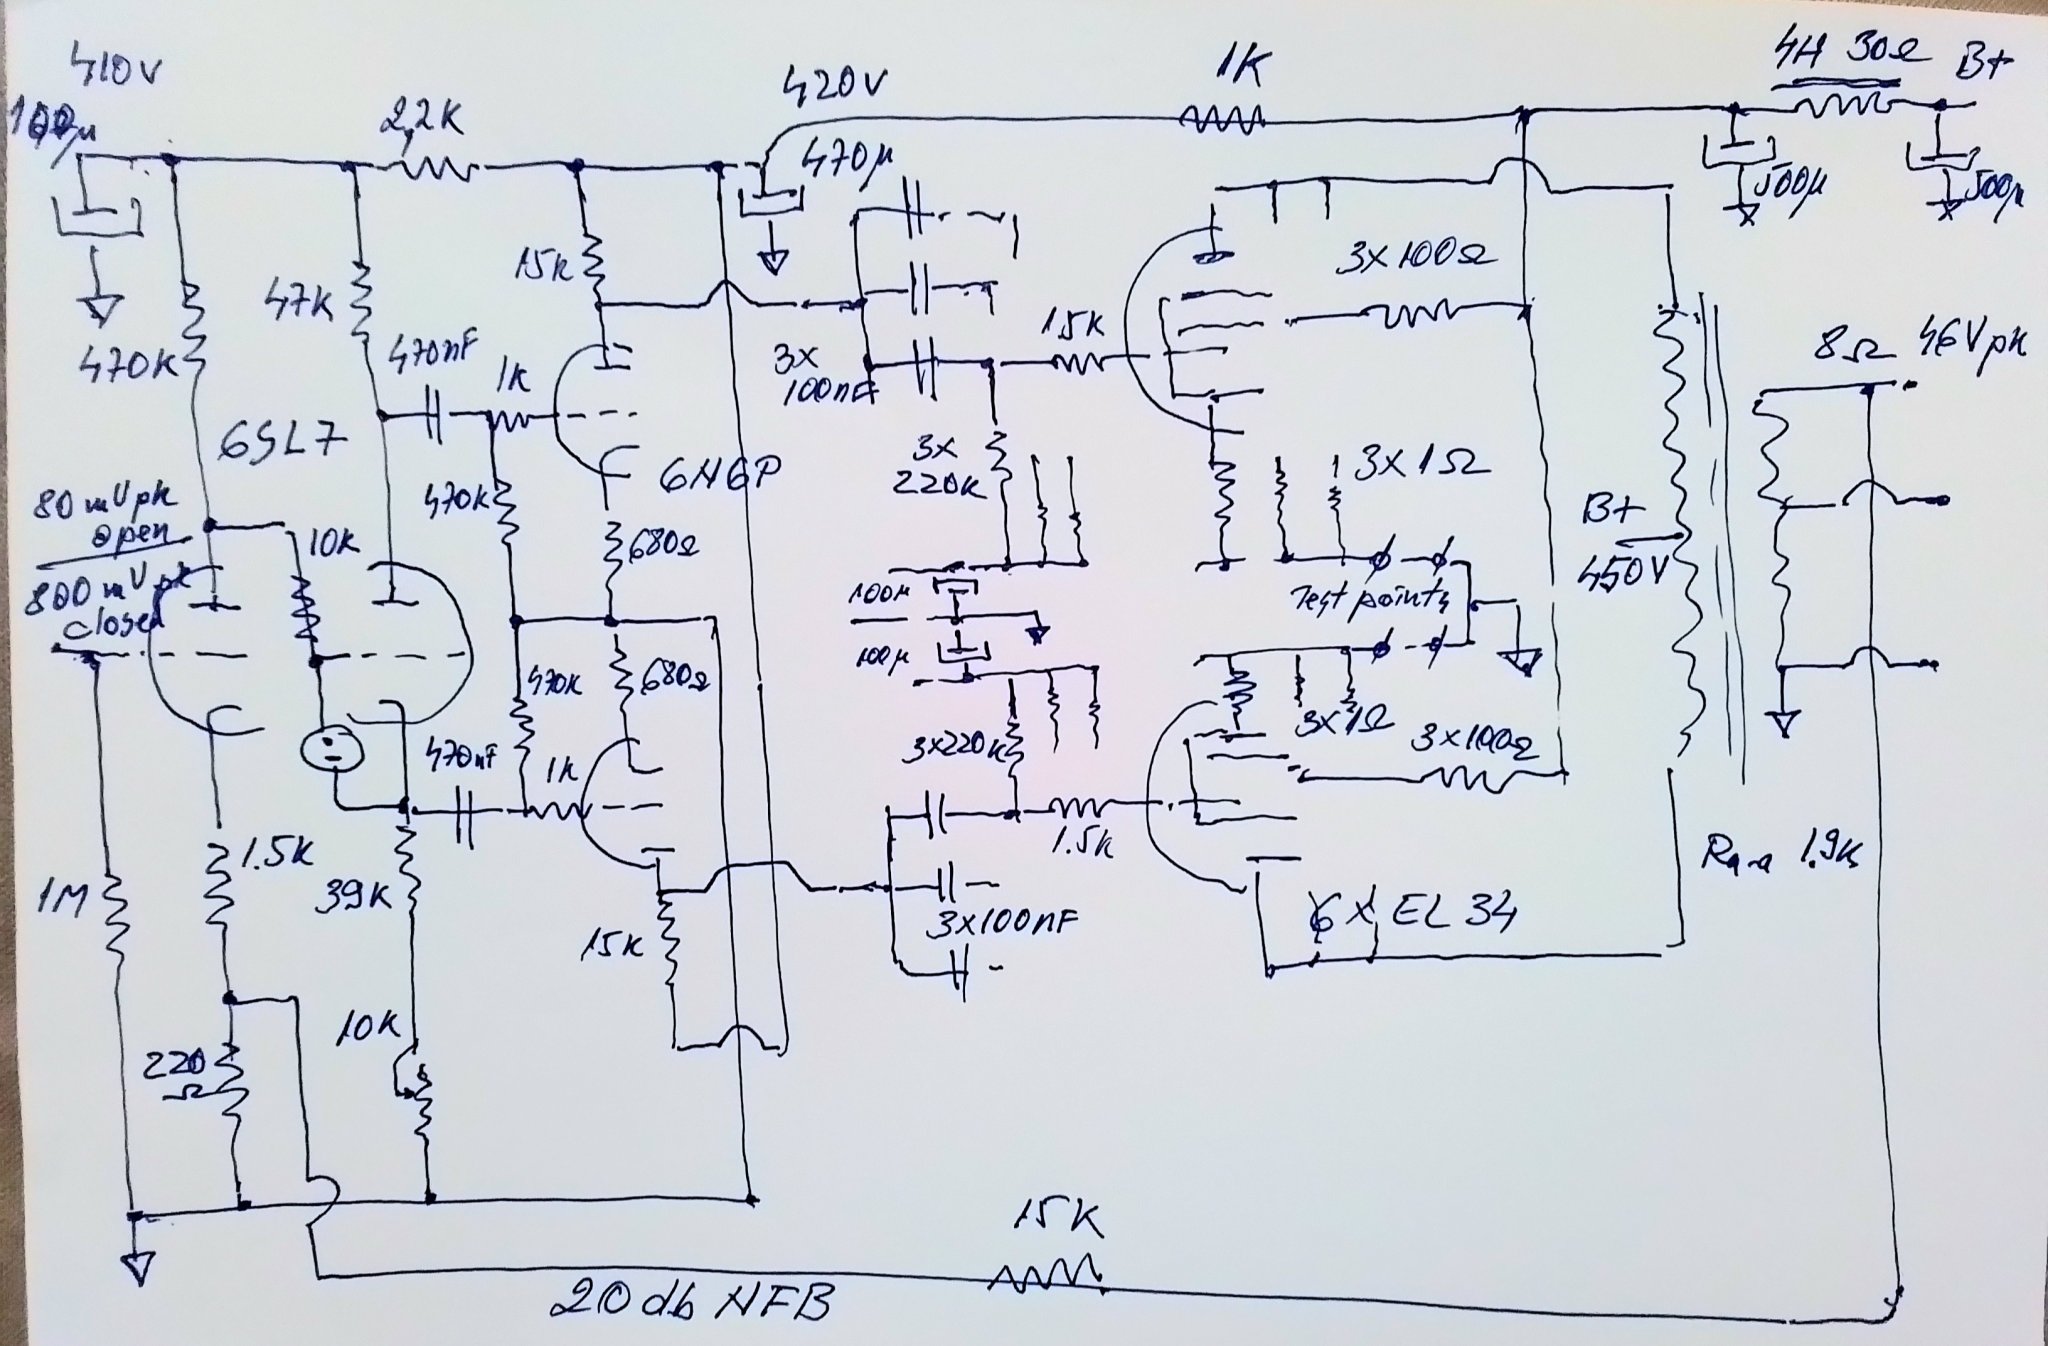 410V
100µ
2,2K
420V
470µ
1K
4H 30Ω B+
500µ
500µ
15K
47K
470K
470nF
1K
3x
100nF
1.5K
3x100Ω
8Ω 46Vpk
6SL7
6H6P
3x
220K
3x1Ω
80mVpk
open
800mVpk
closed
10K
470K
680Ω
B+
450V
100µ
Test points
100µ
470K
680Ω
470nF
1K
3x220K
3x1Ω
3x100Ω
1.5K
39K
1M
1.5K
Ra-a 1.9K
15K
3x100nF
6x EL34
10K
220
Ω
15K
20db NFB